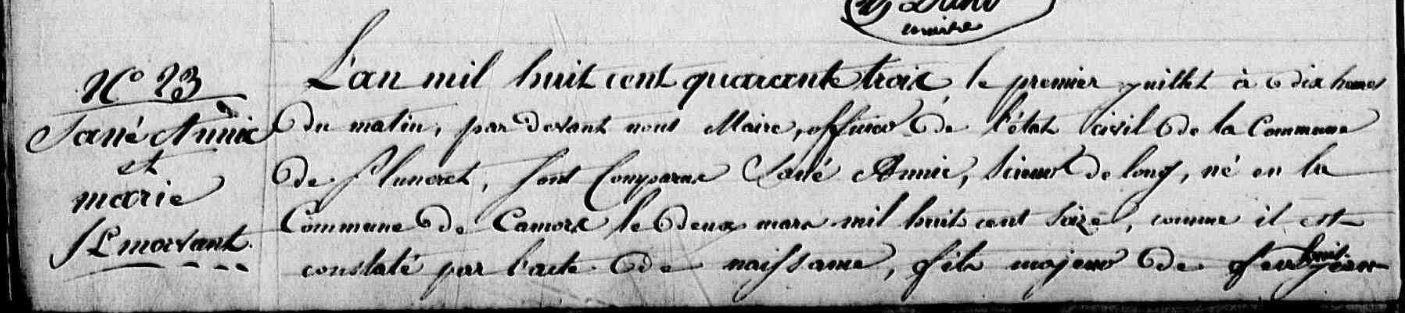 maire
N° 23
Jané Annic
et
marie
Lemorvant.
L'an mil huit cent quarante trois le premier juillet à dix heures
du matin, par devant nous Maire, officier de l'état civil de la Commune
de Pluneret, sont Comparus Jané Annic, scieur de long, né en la
Commune de Camors le deux mars mil huit cent seize, comme il est
constaté par l'acte de naissance, fils majeur de feu